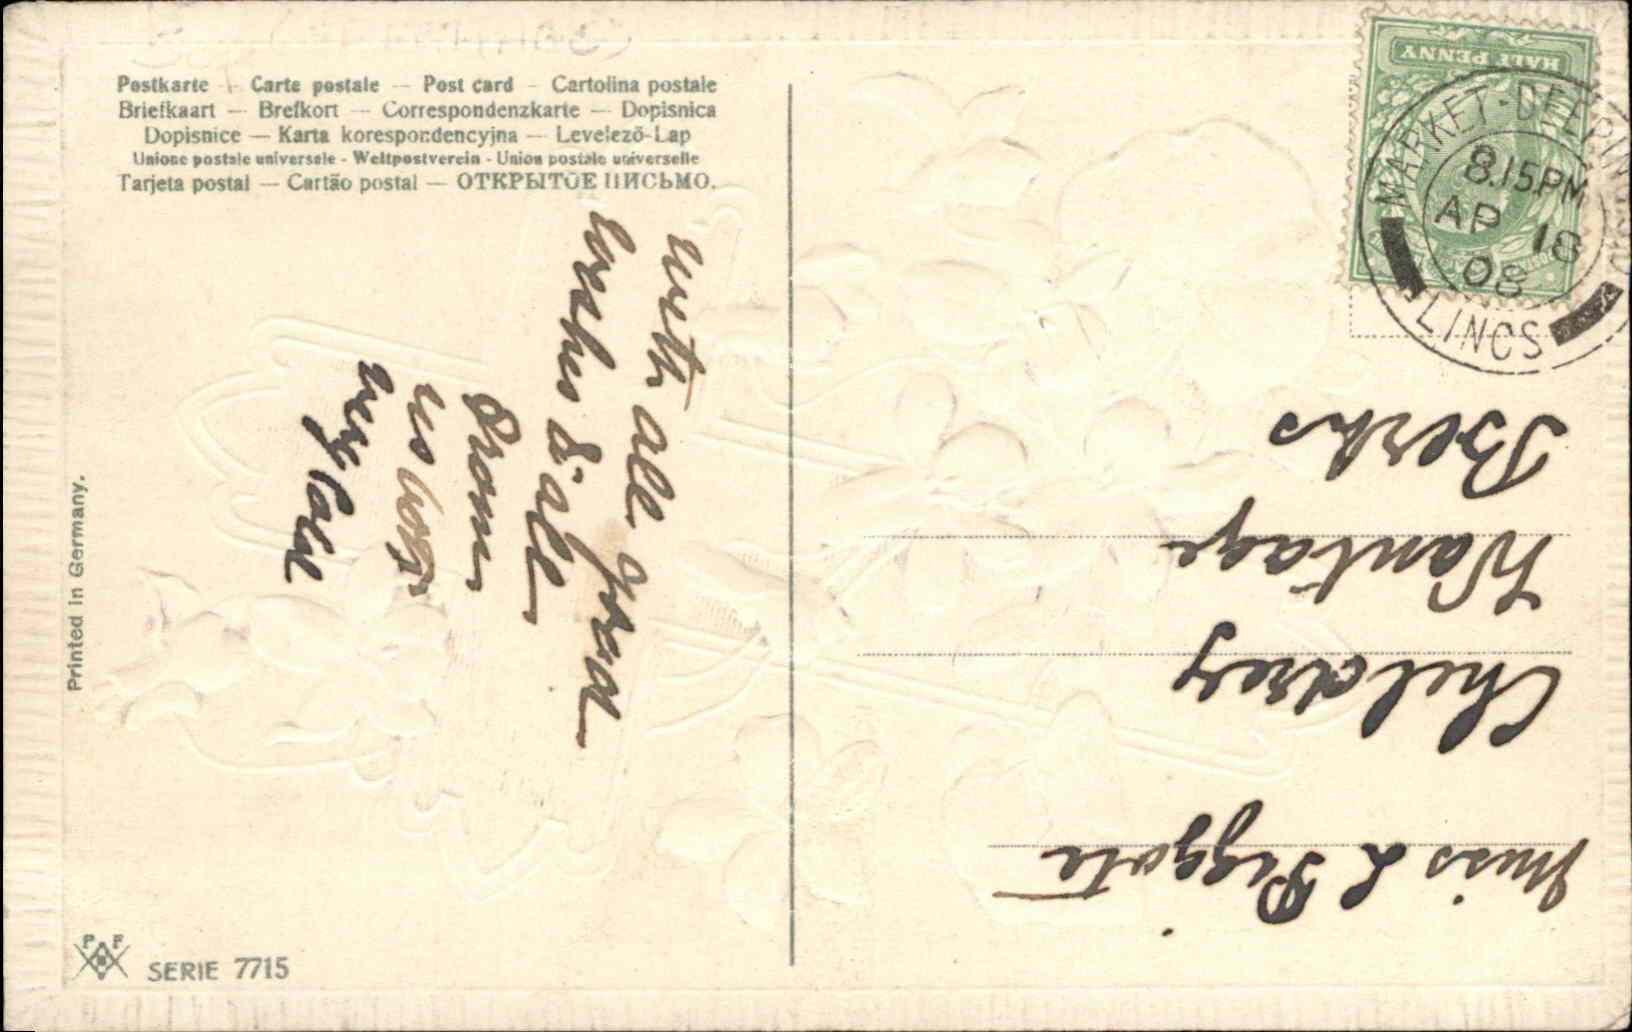 Postkarte — Carte postale — Post card — Cartolina postale
Briefkaart — Brefkort — Correspondenzkarte — Dopisnica
Dopisnice — Karta korespondencyjna — Levelező-Lap
Unione postale universale - Weltpostverein - Union postale universelle
Tarjeta postal — Cartão postal — ОТКРЫТОЕ ПИСЬМО.
with all good
wishes & all
from
us both
very cold
Printed in Germany.
P F
SERIE 7715
HALF PENNY
MARKET-DEEPING
8.15PM
AP 18
08
LINCS
Miss L Piggott
Childrey
Wantage
Berks